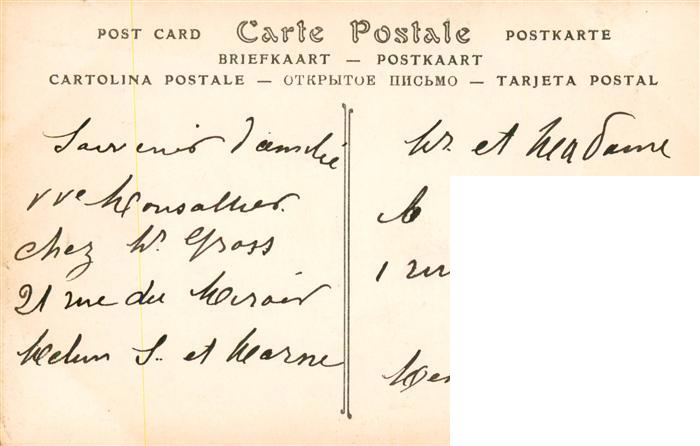 POST CARD Carte Postale POSTKARTE
BRIEFKAART — POSTKAART
CARTOLINA POSTALE — ОТКРЫТОЕ ПИСЬМО — TARJETA POSTAL
Souvenir d'amitié
vve
chez Mr Gross
21 rue du Miroir
Melun S.. et Marne
Mr. et Madame
1 rue